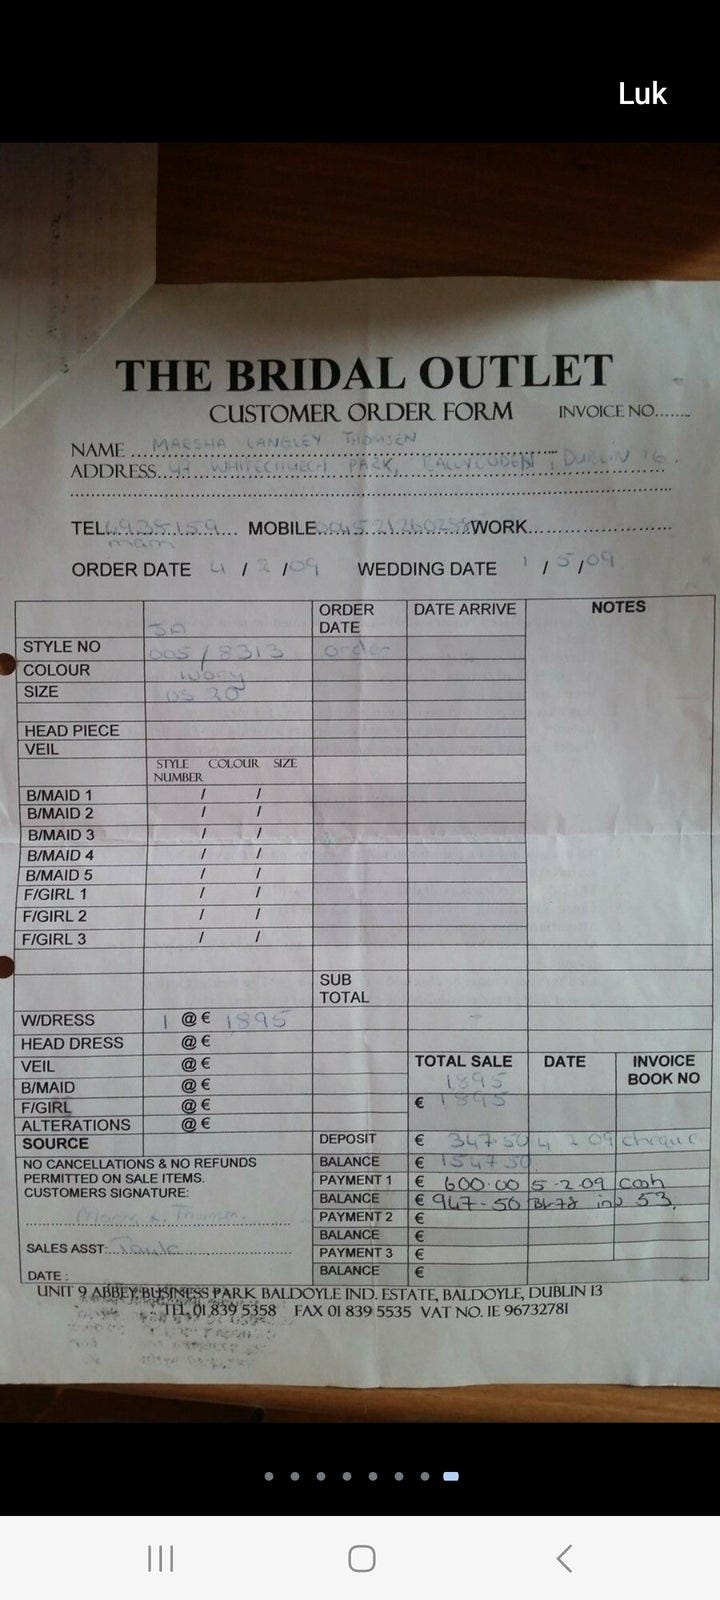 Luk
THE BRIDAL OUTLET
CUSTOMER ORDER FORM INVOICE NO........
NAME MARSHA LANGLEY THOMSEN
ADDRESS WHITECHURCH PARK, DUBLIN 16.
TEL 4935159 MOBILE WORK
mam
ORDER DATE 4 / 2 /09 WEDDING DATE 1 / 5 /09
ORDER DATE DATE ARRIVE NOTES
STYLE NO 005 / 8313 order
COLOUR Ivory
SIZE 20
HEAD PIECE
VEIL
STYLE NUMBER COLOUR SIZE
B/MAID 1 / /
B/MAID 2 / /
B/MAID 3 / /
B/MAID 4 / /
B/MAID 5 / /
F/GIRL 1 / /
F/GIRL 2 / /
F/GIRL 3 / /
SUB TOTAL
W/DRESS 1 @ € 1895
HEAD DRESS @ €
VEIL @ € TOTAL SALE DATE INVOICE BOOK NO
B/MAID @ € 1895
F/GIRL @ € € 1895
ALTERATIONS @ €
SOURCE DEPOSIT € 347.50 4 2 09 cheque
NO CANCELLATIONS & NO REFUNDS BALANCE € 1547.50
PERMITTED ON SALE ITEMS. PAYMENT 1 € 600.00 5-2.09 Cash
CUSTOMERS SIGNATURE: BALANCE € 947-50 53
PAYMENT 2 €
BALANCE €
SALES ASST: PAYMENT 3 €
DATE : BALANCE €
UNIT 9 ABBEY BUSINESS PARK BALDOYLE IND. ESTATE, BALDOYLE, DUBLIN 13
TEL 01 839 5358 FAX 01 839 5535 VAT NO. IE 9673278I